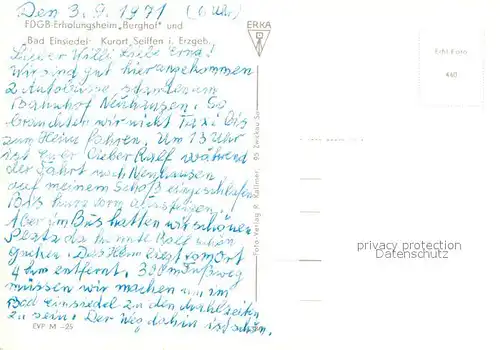 Den 3.9.1971 (6 Uhr)
FDGB-Erholungsheim „Berghof" und
Bad Einsiedel · Kurort Seiffen i. Erzgeb.
ERKA
Echt Foto
440
Lieber Willi liebe Erna!
Wir sind gut hier angekommen
2 Autobusse standen am
Bahnhof Neuhausen. So
brauchten wir nicht Taxi bis
zum Heim fahren. Um 13 Uhr
ist Euer lieber Ralf während
der Fahrt nach Neuhausen
auf meinem Schoß eingeschlafen
Bis kurz vorm aussteigen.
Aber im Bus hatten wir schönen
Platz da konnte Ralf schön
gucken. Das Heim liegt vom Ort
4 km entfernt. 300 m Fußweg
müssen wir machen um im
Bad Einsiedel zu den Mahlzeiten
zu sein. Der Weg dahin ist schön.
EVP M -25
Foto-Verlag R. Kallmer, 95 Zwickau Sa.
privacy protection
Datenschutz